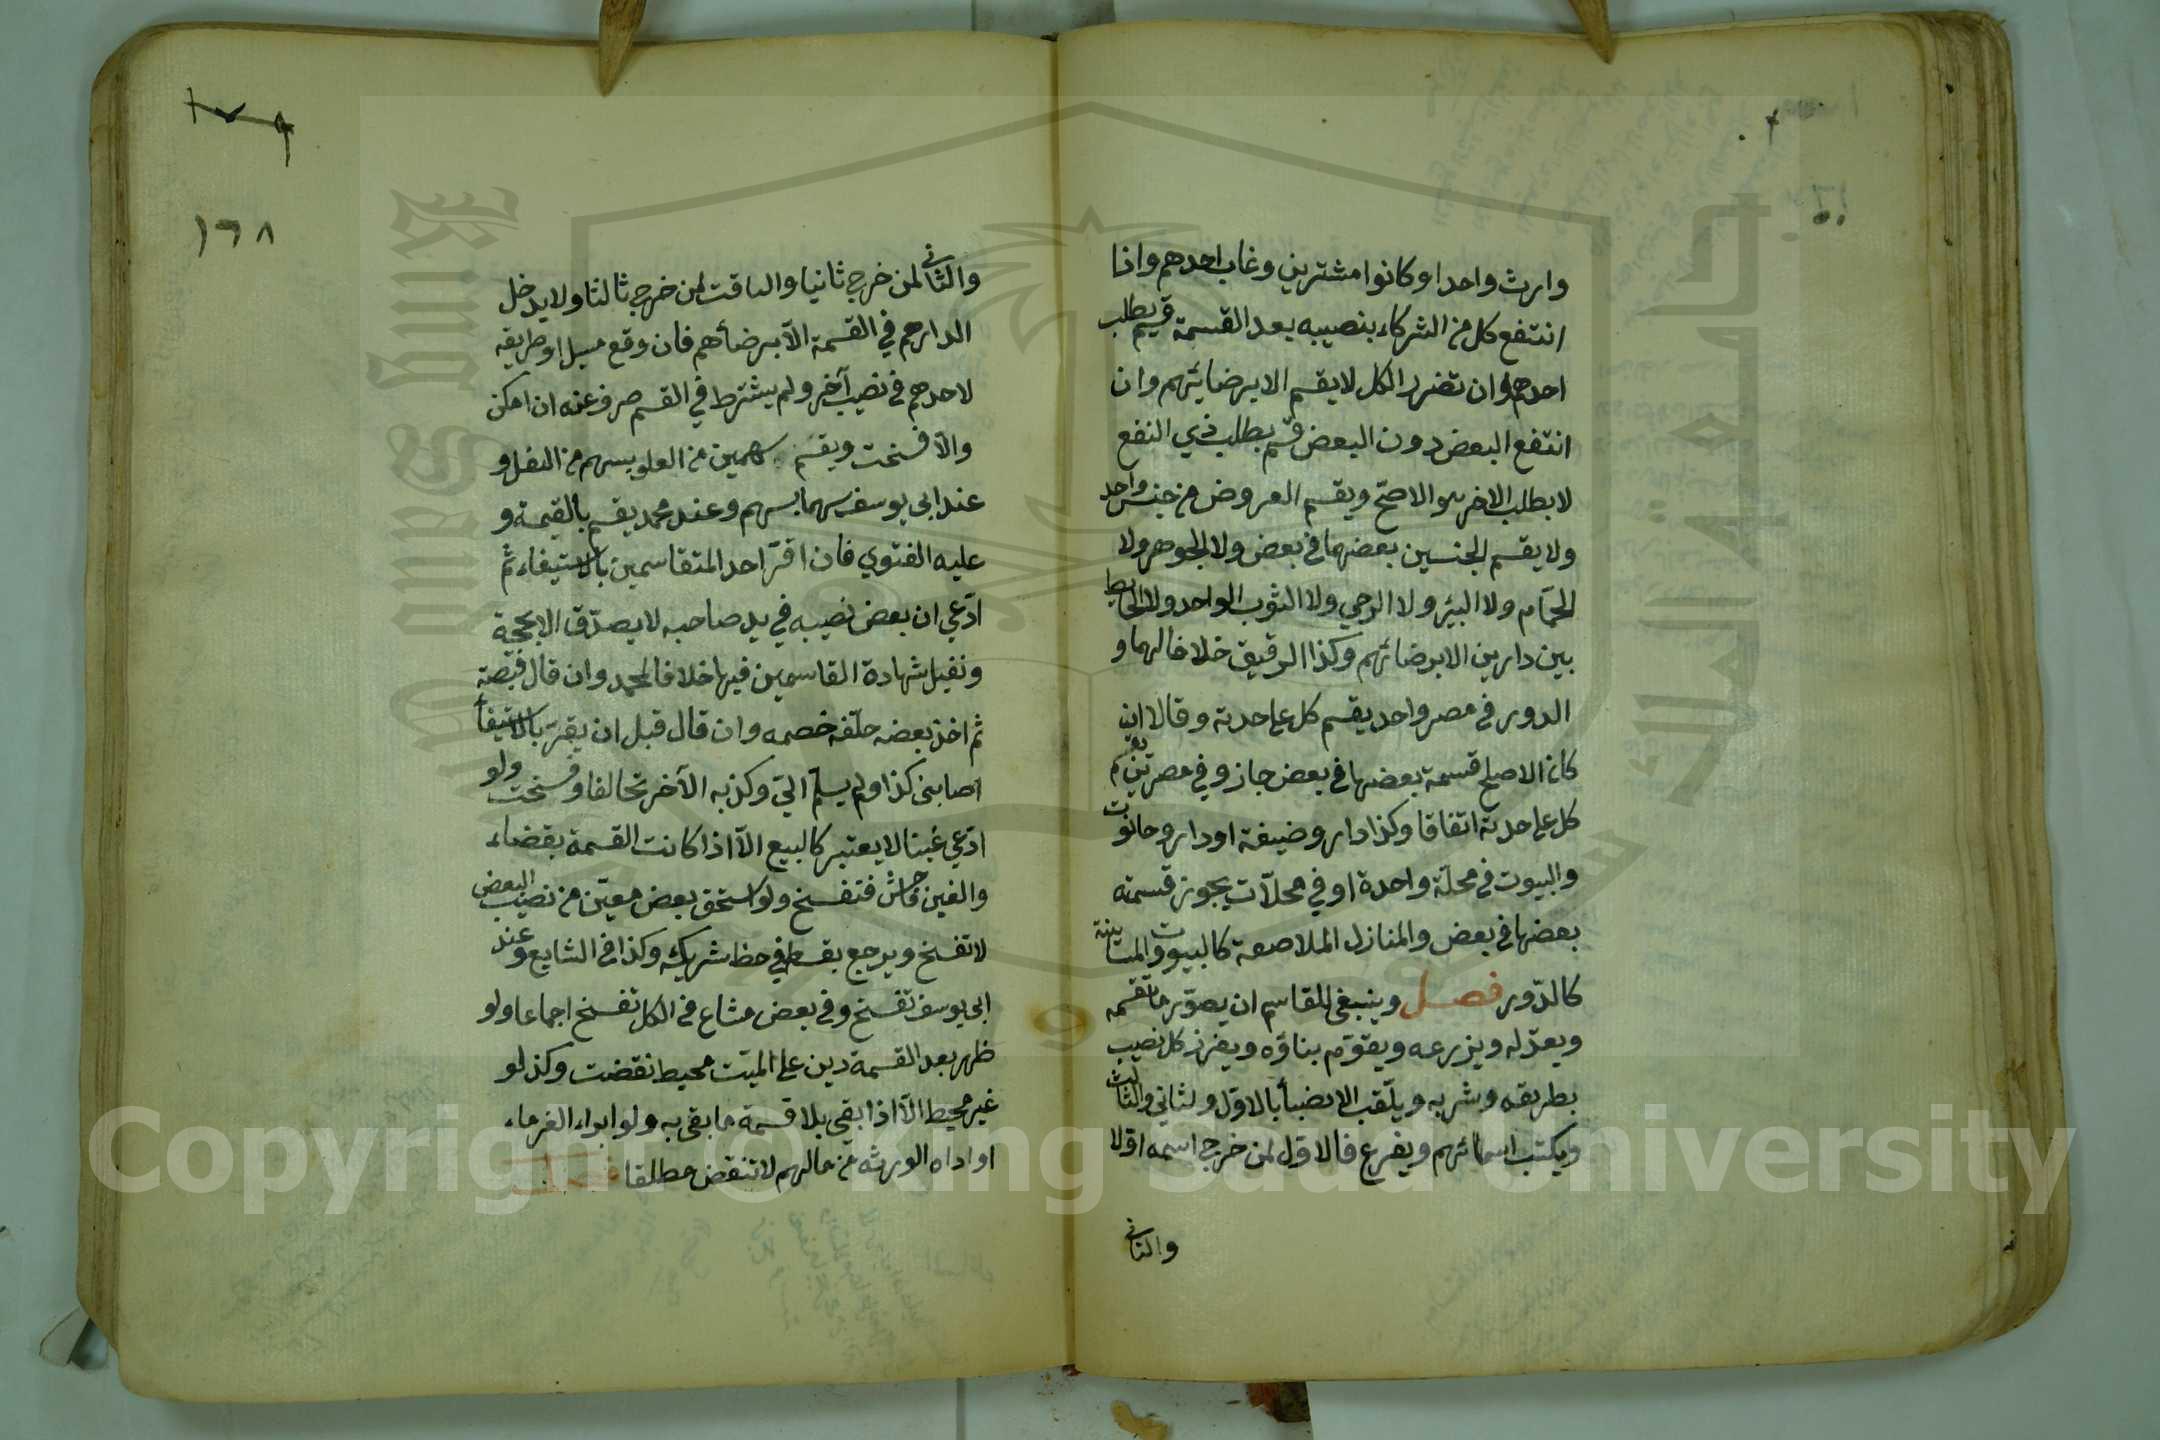 وارث واحد او كانوا مشترين وغاب احدهم واذا
انتفع كل من الشركاء بنصيبه بعد القسمة قسم بطلب
احدهم وان تضرر الكل لا يقسم الا برضائهم وان
انتفع البعض دون البعض قسم بطلب ذي النفع
لا بطلب الاخر هو الاصح ويقسم العروض من جنس واحد
ولا يقسم الجنسين بعضهما في بعض ولا الجوهر ولا
الحمّام ولا البئر ولا الرحي ولا الثوب الواحد ولا الحايط
بين دارين الا برضائهم وكذا الرقيق خلافا لهما و
الدور في مصر واحد يقسم كل على حدته وقالا ان
كان الاصلح قسمة بعضها في بعض جاز وفي مصرين يقسم
كل على حدته اتفاقا وكذا دار وضيعة او دار وحانوت
والبيوت في محلّة واحدة او في محلّات يجوز قسمته
بعضها في بعض والمنازل الملاصقة كالبيوت والمتباينة
كالدّور فصل وينبغي للقاسم ان يصوّر ما تقسمه
ويعدّله ويزرعه ويقوّم بناؤه ويفرز كل نصيب
بطريقه وشربه ويلّقب الانضباء بالاوّل ولثاني والثالث
ويكتب اسمائهم ويقرع فالاوّل لمن خرج اسمه اوّلا
والثاني
١٦٨
والثاني لمن خرج ثانيا والباقت لمن خرج ثالثا ولا يدخل
الدارهم في القسمة الّا برضاءهم فان وقع مسيل او طريقه
لاحدهم في نصيب آخر ولم يشترط في القسم صرف عنه ان امكن
والّا فسخت ويقسم سهمين من العلو بسهم من السفل و
عند ابى يوسف سهما بسهم وعند محمد يقسم بالقيمة و
عليه الفتوي فان اقرّ احد المتقاسمين بالاستيفاء ثم
ادّعي ان بعض نصيبه في يد صاحبه لا يصدّق الا بحجة
ونقبل شهادة القاسمين فيها خلافا لمحمد وان قال قبضته
ثم اخذ بعضه حلّفه خصمه وان قال قبل ان يقرّ بالاستيفاء
اصابنى كذا ولم يسلّم اليّ وكذبه الآخر تحالفا وفسخت ولو
ادّعي غبنا لا يعتبر كالبيع الّا اذا كانت القسمة بقضاء
والغبن فاحش فتفسخ ولو استحق بعض معيّن من نصيب البعض
لا تفسخ ويرجع بقسطه في حظ شريكه وكذا في الشايع وعند
ابى يوسف تفسخ وفي بعض مشاع في الكل تفسخ اجماعا ولو
ظهر بعد القسمة دين على الميّت محيط نقضت وكذا لو
غير محيط الّا اذا بقى بلا قسمة ما بقى به ولو ابراء الغرماء
او اداه الورثه من مالهم لا تنقض مطلقا فصل
Copyright © King Saud University